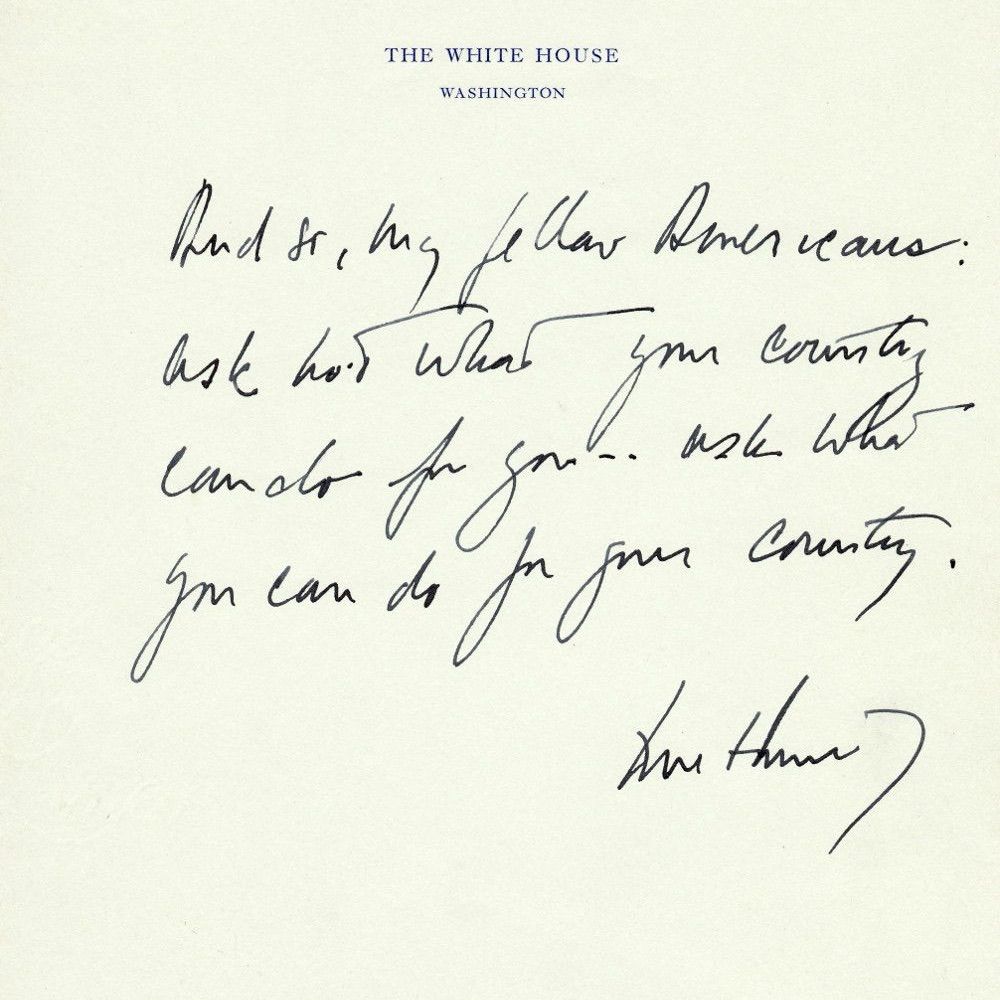 THE WHITE HOUSE
WASHINGTON
And so, my fellow Americans:
ask not what your country
can do for you -- ask what
you can do for your country.